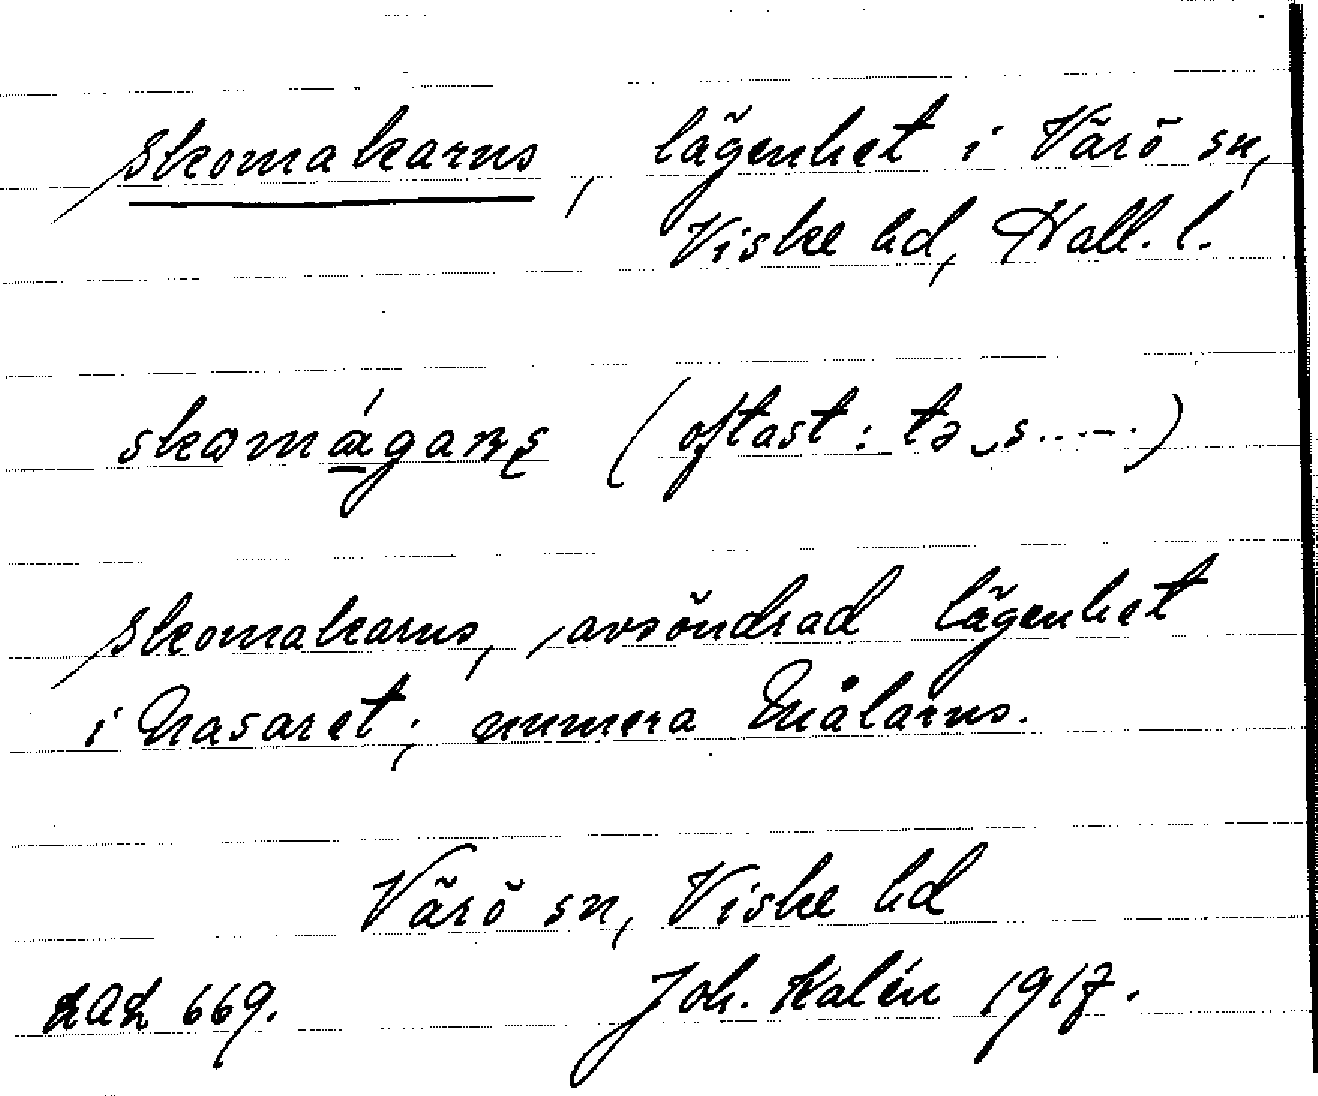 Skomakarns, lägenhet i Värö sn,
Viske hd, Hall. l.
skomágarṇṣ (oftast: tə s.....)
Skomakarns, avsöndrad lägenhet
i Nasaret; numera Målarns.
Värö sn, Viske hd
669. Joh. Kalén 1917.